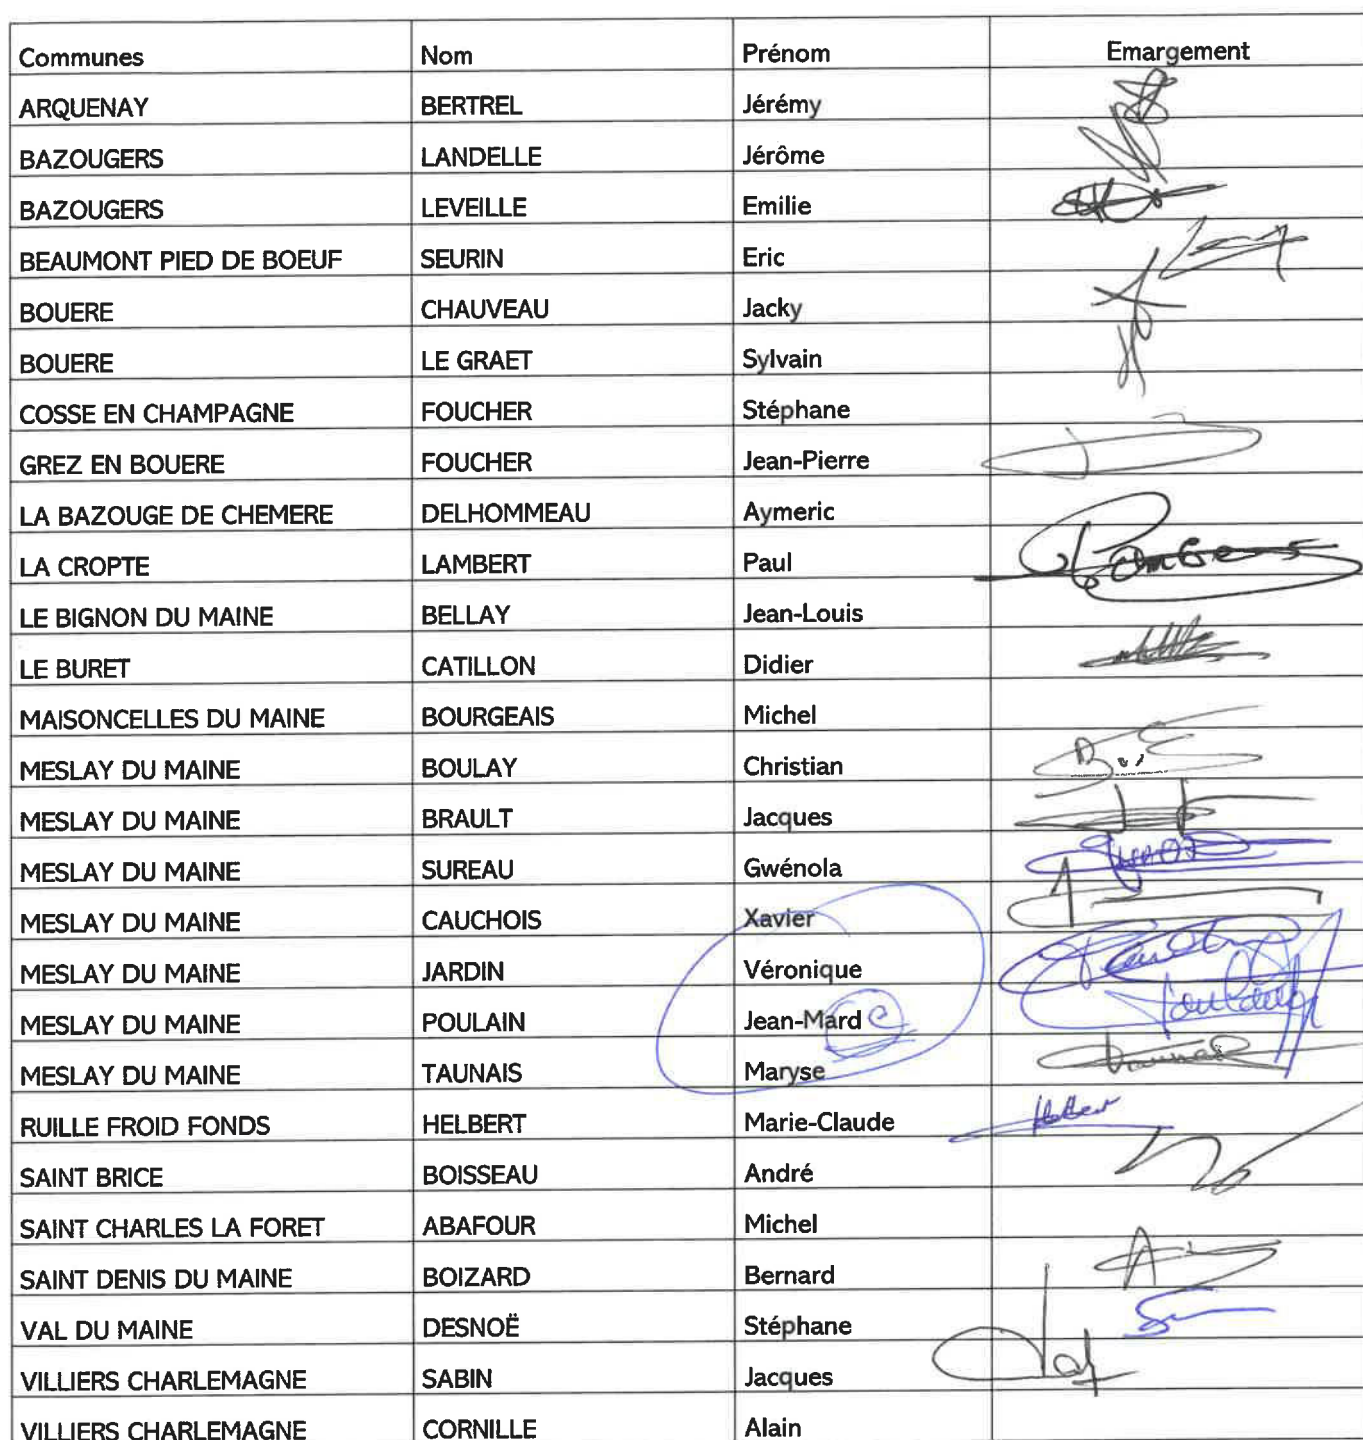 Communes Nom Prénom Emargement
ARQUENAY BERTREL Jérémy
BAZOUGERS LANDELLE Jérôme
BAZOUGERS LEVEILLE Emilie
BEAUMONT PIED DE BOEUF SEURIN Eric
BOUERE CHAUVEAU Jacky
BOUERE LE GRAET Sylvain
COSSE EN CHAMPAGNE FOUCHER Stéphane
GREZ EN BOUERE FOUCHER Jean-Pierre
LA BAZOUGE DE CHEMERE DELHOMMEAU Aymeric
LA CROPTE LAMBERT Paul
LE BIGNON DU MAINE BELLAY Jean-Louis
LE BURET CATILLON Didier
MAISONCELLES DU MAINE BOURGEAIS Michel
MESLAY DU MAINE BOULAY Christian
MESLAY DU MAINE BRAULT Jacques
MESLAY DU MAINE SUREAU Gwénola
MESLAY DU MAINE CAUCHOIS Xavier
MESLAY DU MAINE JARDIN Véronique
MESLAY DU MAINE POULAIN Jean-Mard c
MESLAY DU MAINE TAUNAIS Maryse
RUILLE FROID FONDS HELBERT Marie-Claude
SAINT BRICE BOISSEAU André
SAINT CHARLES LA FORET ABAFOUR Michel
SAINT DENIS DU MAINE BOIZARD Bernard
VAL DU MAINE DESNOË Stéphane
VILLIERS CHARLEMAGNE SABIN Jacques
VILLIERS CHARLEMAGNE CORNILLE Alain